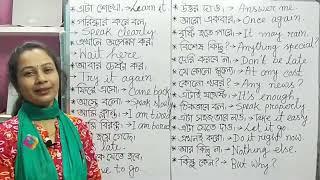 এটা শেখো, Learn it.
পরিষ্কার করে বল,
Speak clearly.
এখানে অপেক্ষা কর,
Wait here
আবার চেষ্টা কর,
Try it again
ফিরে এসো, Come back
আস্তে বলো, Speak slowly
আমি ক্লান্ত, I am tired
বিরক্ত, I am bored
late
যেতে হবে,
to go
উত্তর দাও, Answer me.
আরো একবার, Once again.
বৃষ্টি হতে পারে, It may rain.
বিশেষ কিছু? Anything special?
দেরি করবে না, Don't be late
যে কোনো মূল্যে, At any cost
কোনো খবর? Any news?
এটাই যথেষ্ট, It's enough.
ঠিকভাবে বল, Speak properly
এটা সহজ ভাবে নাও, Take it easy
এটা যেতে দাও, Let it go.
এখনই করো, Do it right now.
আর কিছু না, Nothing else.
কিন্তু কেন? But why?